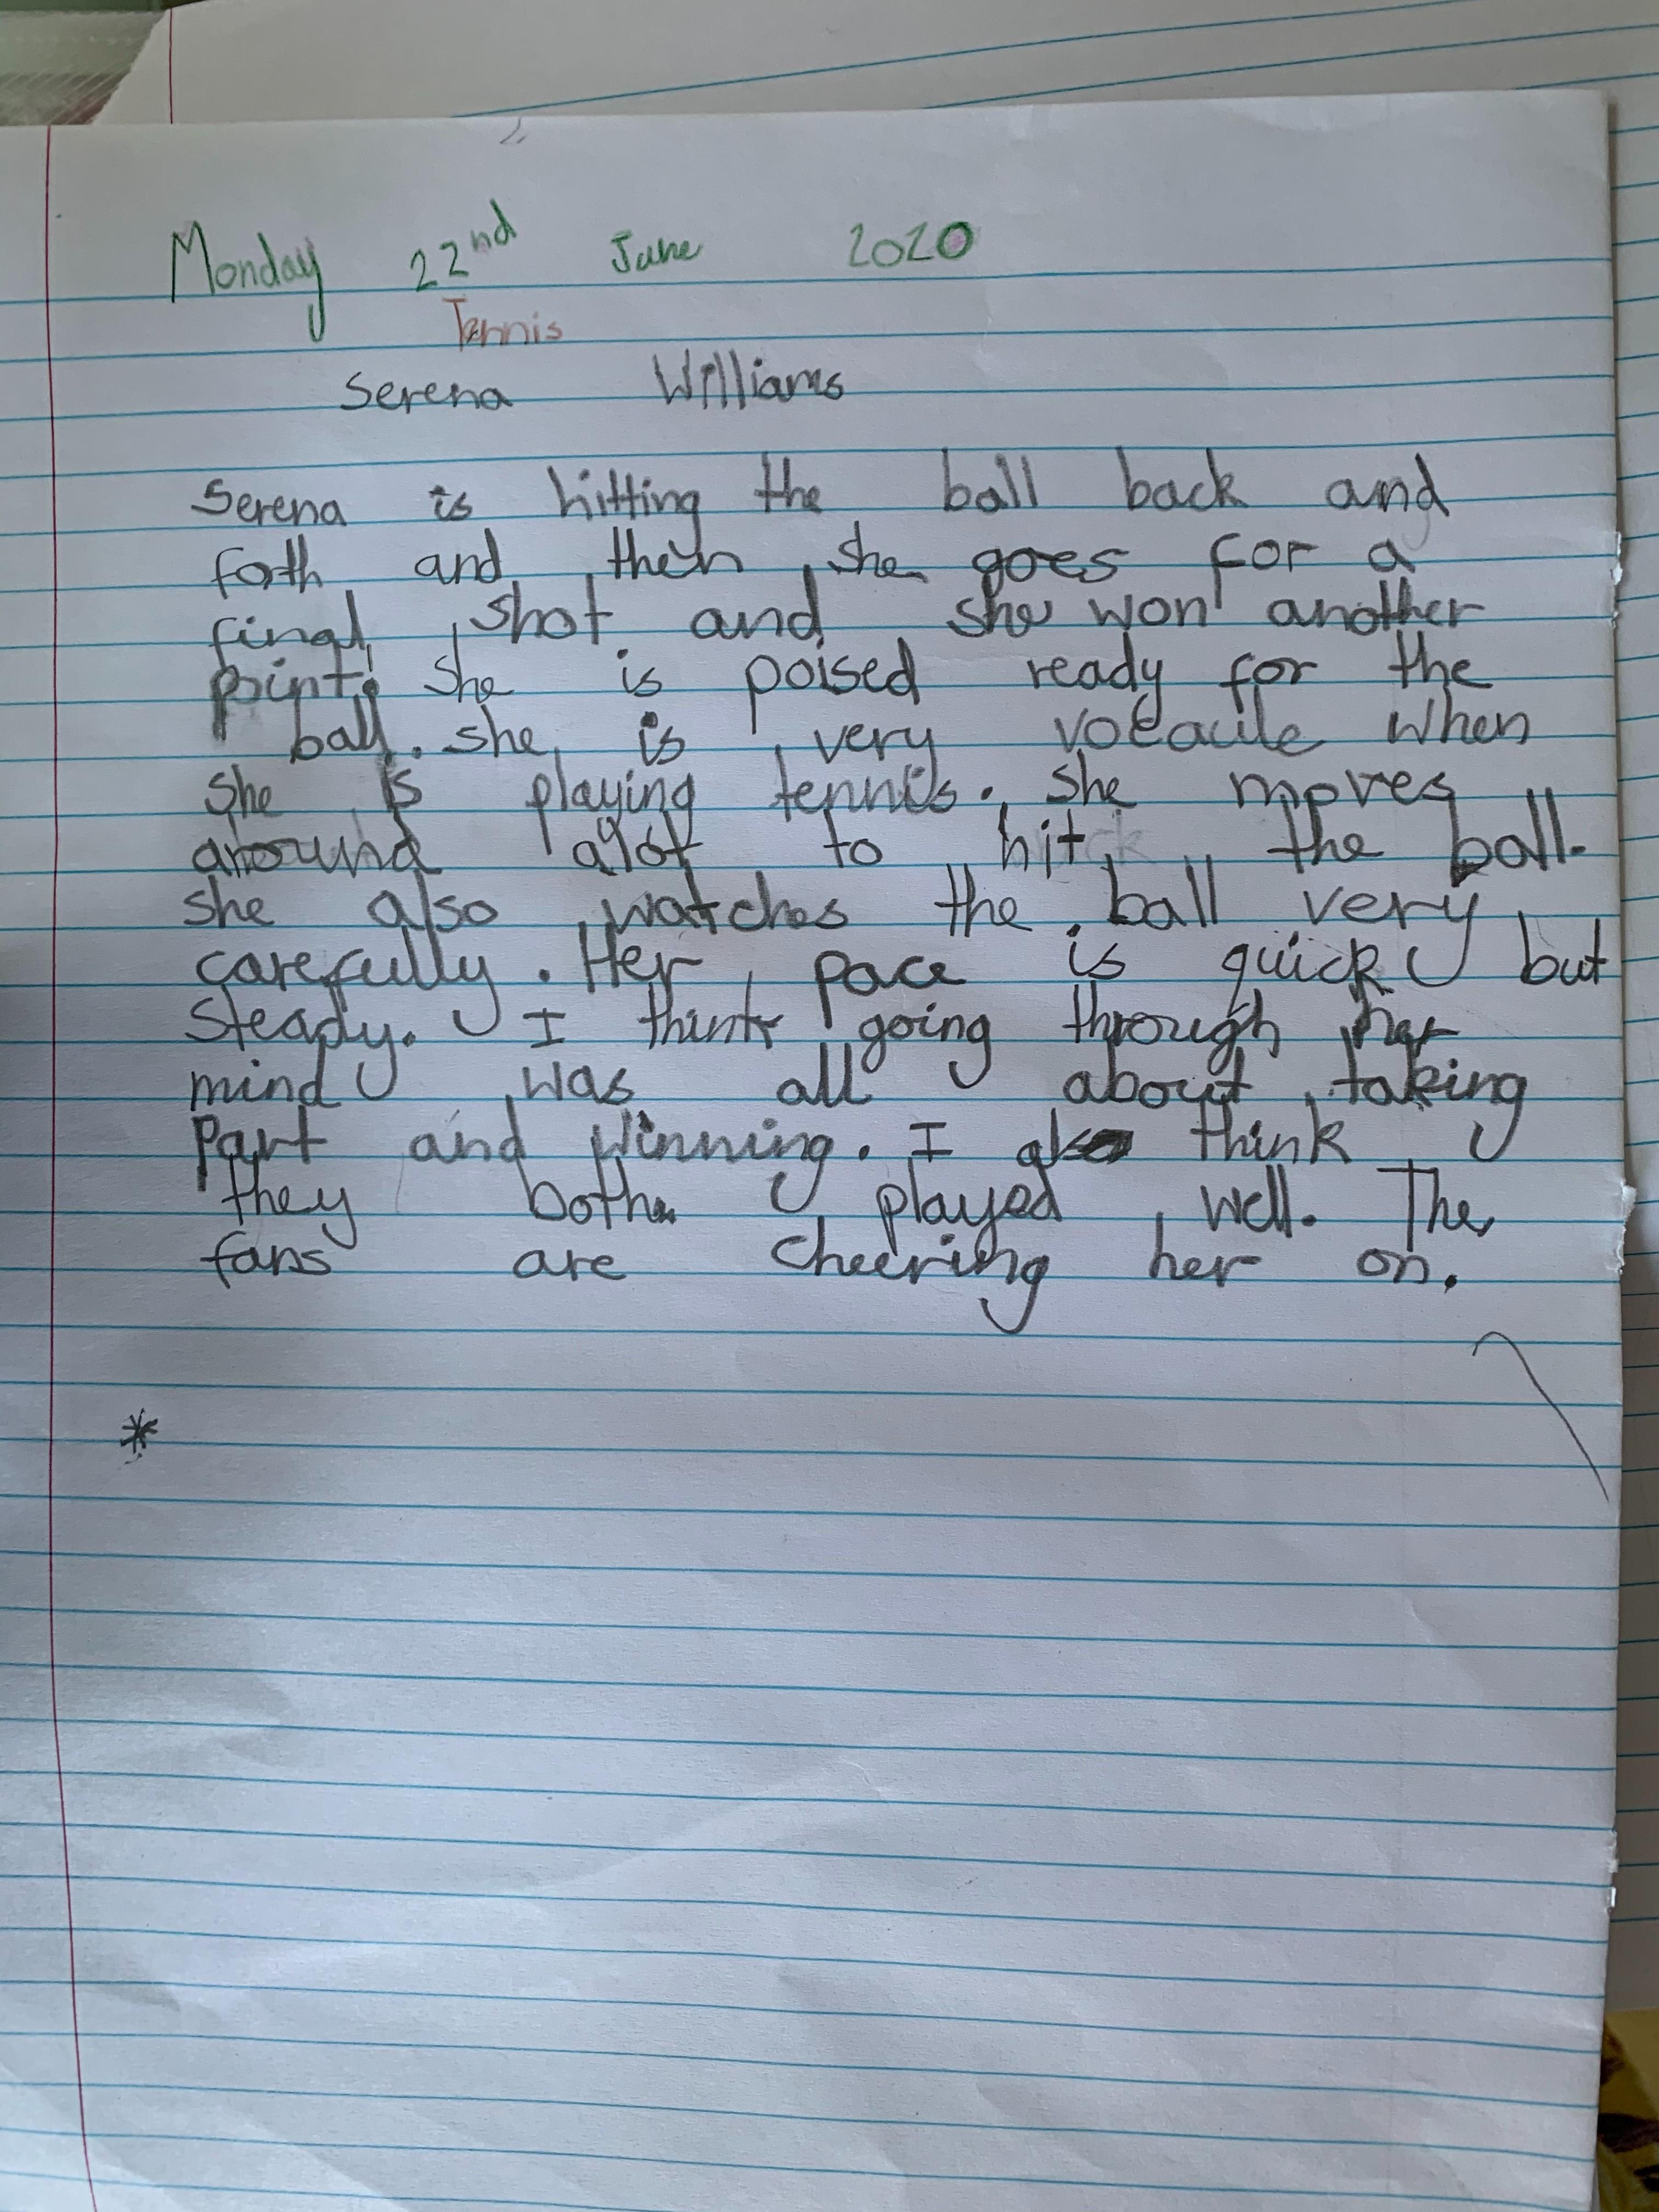 Monday 22nd June 2020
Tennis
Serena Williams
Serena is hitting the ball back and
forth and then she goes for a
final shot and she won another
point! She is poised ready for the
ball. she is very when
She is playing tennis. She moves
around alot to hit the ball.
she also watches the ball very
carefully. Her pace is quick but
Steady. I think going through her
mind was all about taking
part and winning. I also think
they both played well. The
fans are cheering her on.
*